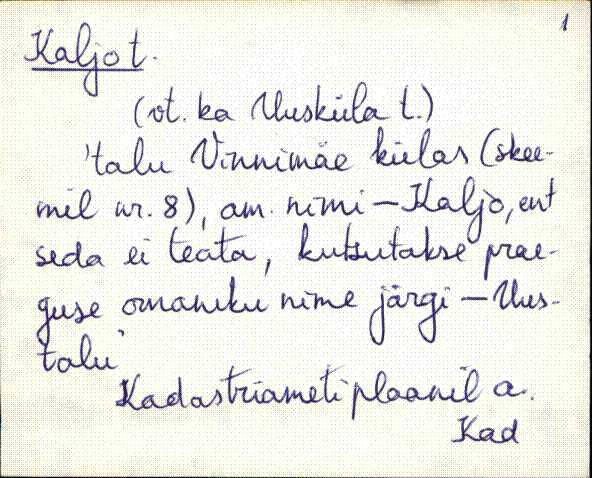 1
Kaljo t.
(vt. ka Uusküla t.)
'talu Vinnimäe külas (skee-
mil nr. 8), am. nimi – Kaljo, ent
seda ei teata, kutsutakse prae-
guse omaniku nime järgi – Uus-
talu'
Kadastriameti plaanil a.
Kad